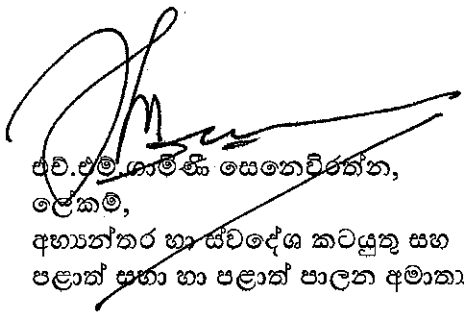 එච්.එම්.ගාමිණී සෙනෙවිරත්න,
ලේකම්,
අභ්‍යන්තර හා ස්වදේශ කටයුතු සහ
පළාත් සභා හා පළාත් පාලන